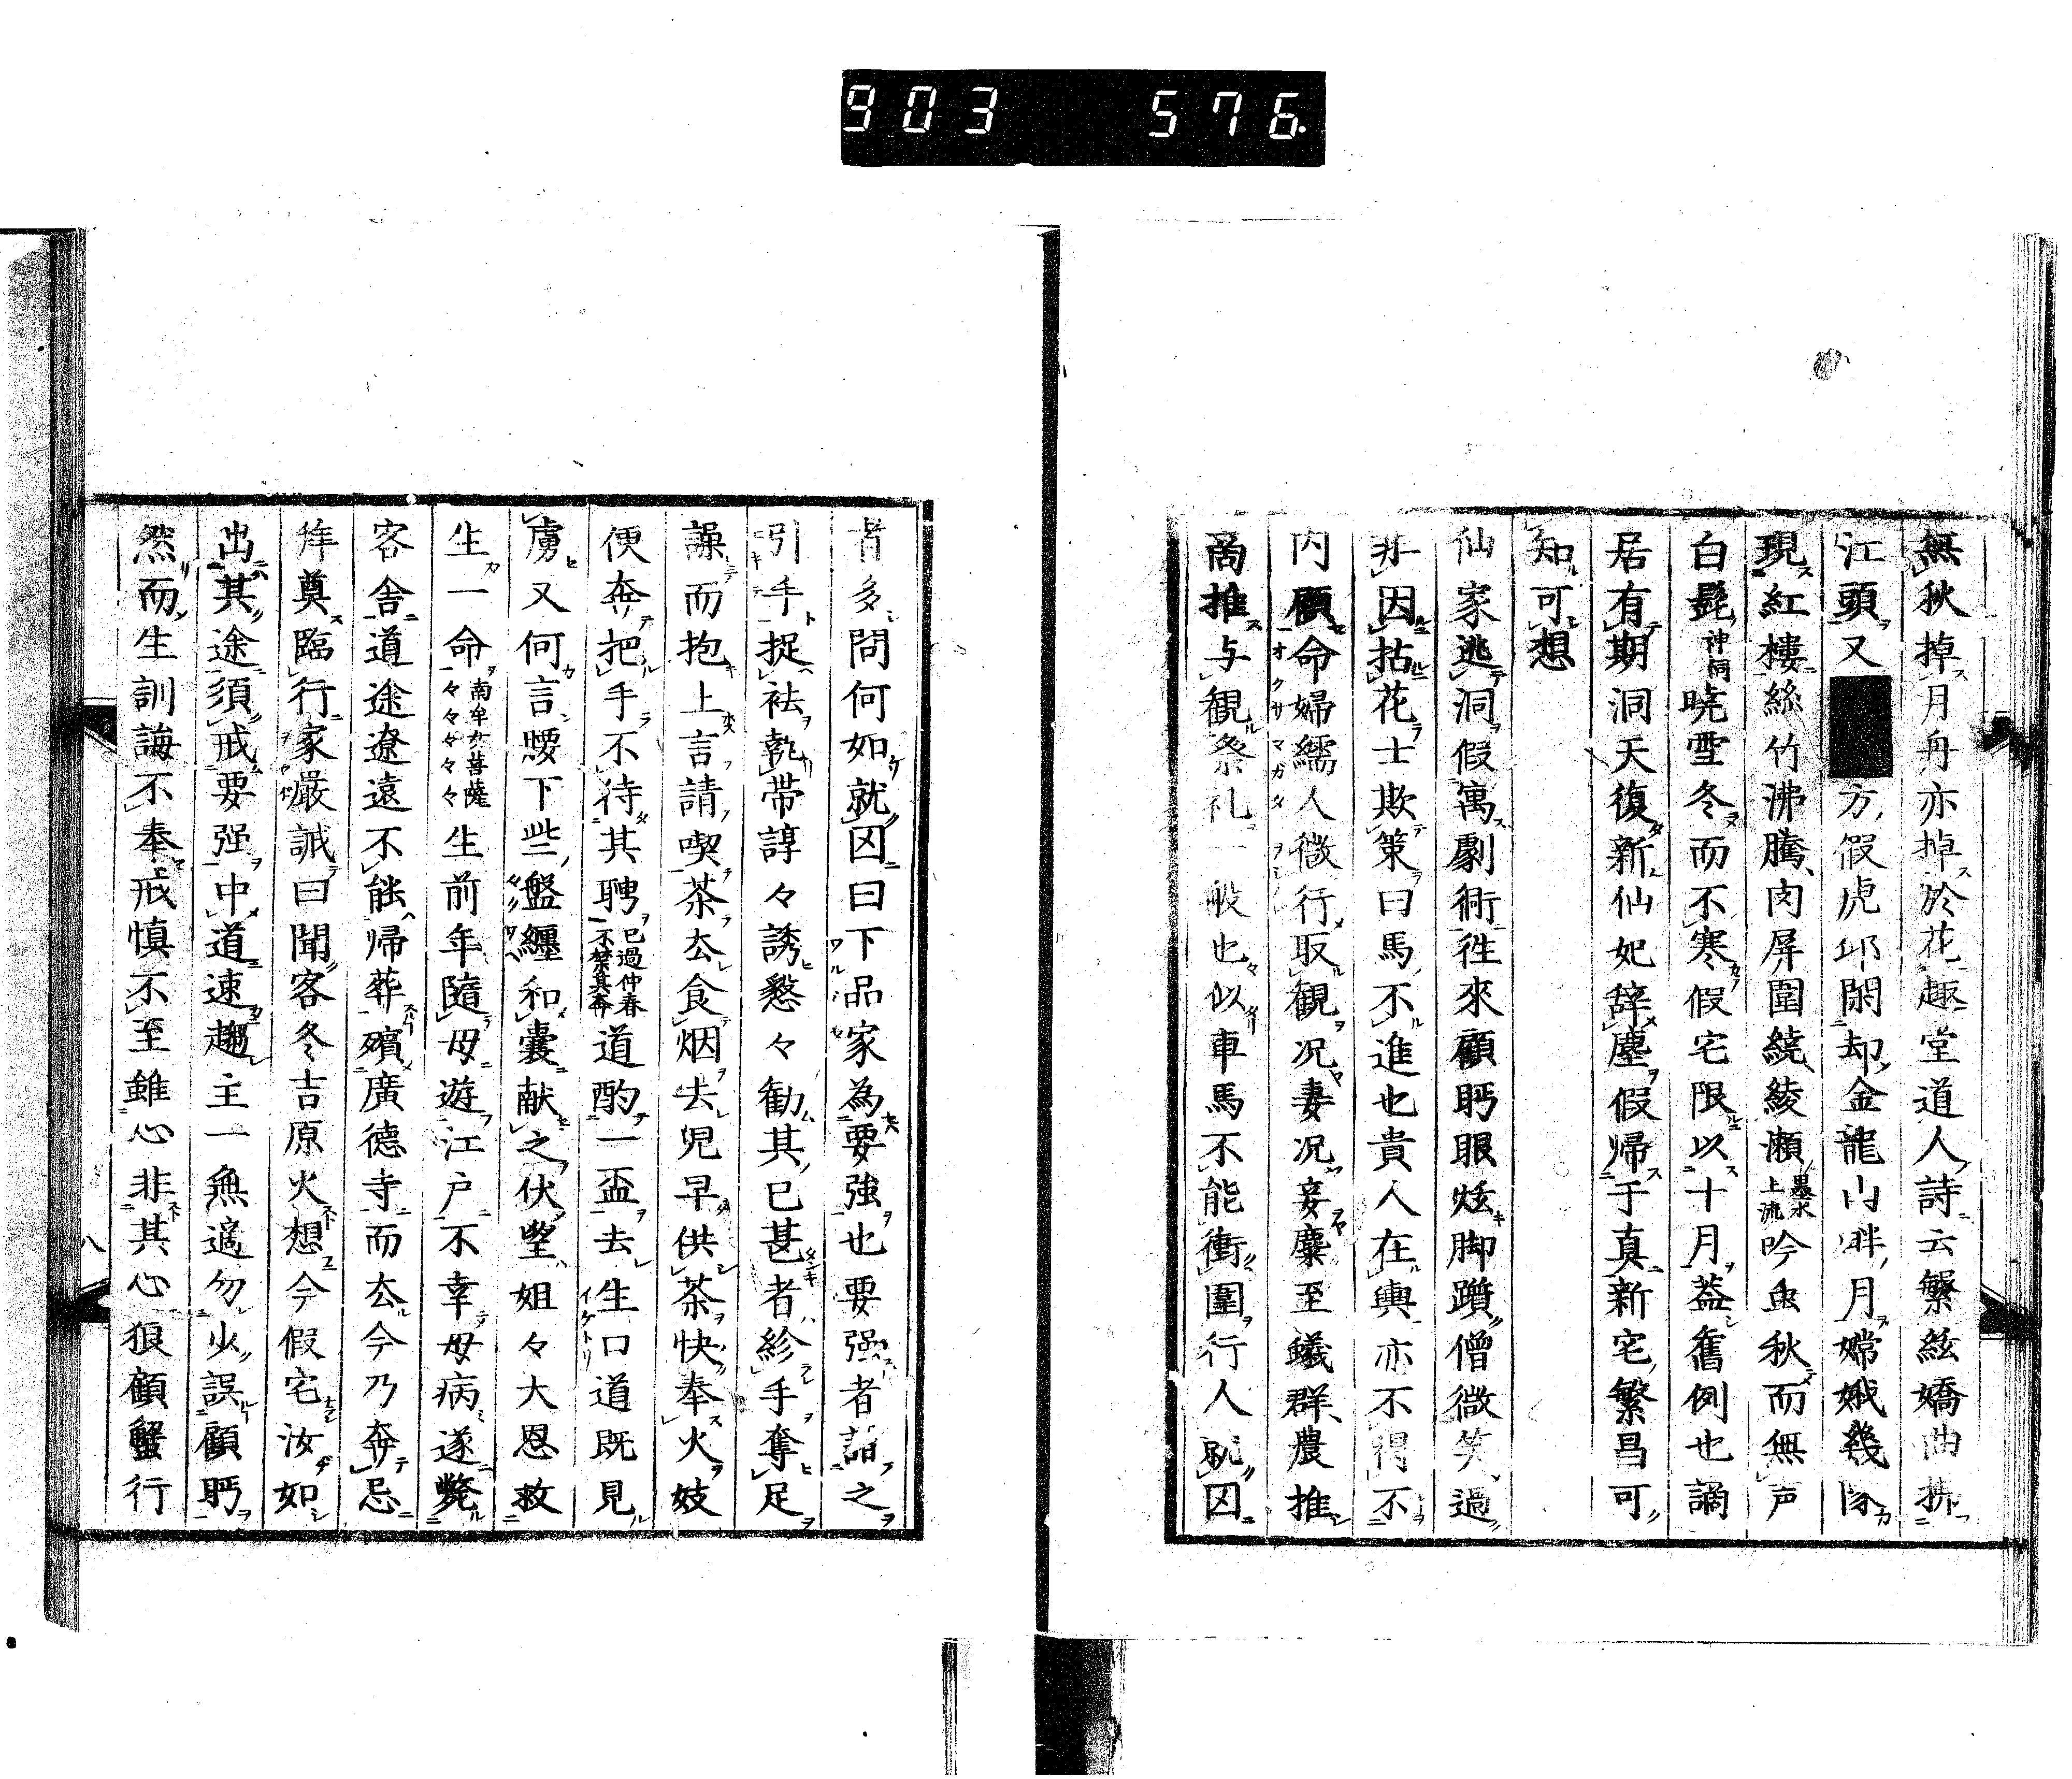 903 576
無秋掉月舟亦掉於花趣堂道人詩云繁絃嬌曲拂
江頭又方假虎邱閑却金龍山畔月嫦娥幾降
現紅樓絲竹沸騰肉屏圍繞綾瀬墨水上流吟虫秋而無声
白髭神祠曉雪冬而不寒假宅限以十月蓋舊例也謫
居有期洞天復新仙妃辞塵假帰于真新宅繁昌可
知可想
仙家逃洞假寓劇術徃來顧眄眼炫脚躓僧微笑過
非因拈花士欺策曰馬不進也貴人在輿亦不得不
内顧命婦孺人微行取観况妻况妾麋至蟻群農推
商推与観祭礼一般也似車馬不能衝圍行人就囚
者多問何如就囚曰下品家為要強也要强者諧之
引手捉袪執帯諄々誘懇々勧其已甚者紾手奪足
譟而抱上言請喫茶去食烟去児早供茶快奉火妓
便奔把手不待其聘已過仲春不禁其奔道酌一盃去生口道既見
虜又何言腰下些盤纏和嚢献之伏望姐々大恩救
生一命南牟大菩薩々々々々々生前年隨母遊江戸不幸母病遂斃
客舎道途遼遠不能帰葬殯廣德寺而去今乃奔忌
拜奠臨行家嚴誡曰聞客冬吉原火想今假宅汝如
出其途須戒要强中道速趨主一無適勿少誤顧眄
然而生訓誨不奉戒慎不至雖心非其心狼顧蟹行
八